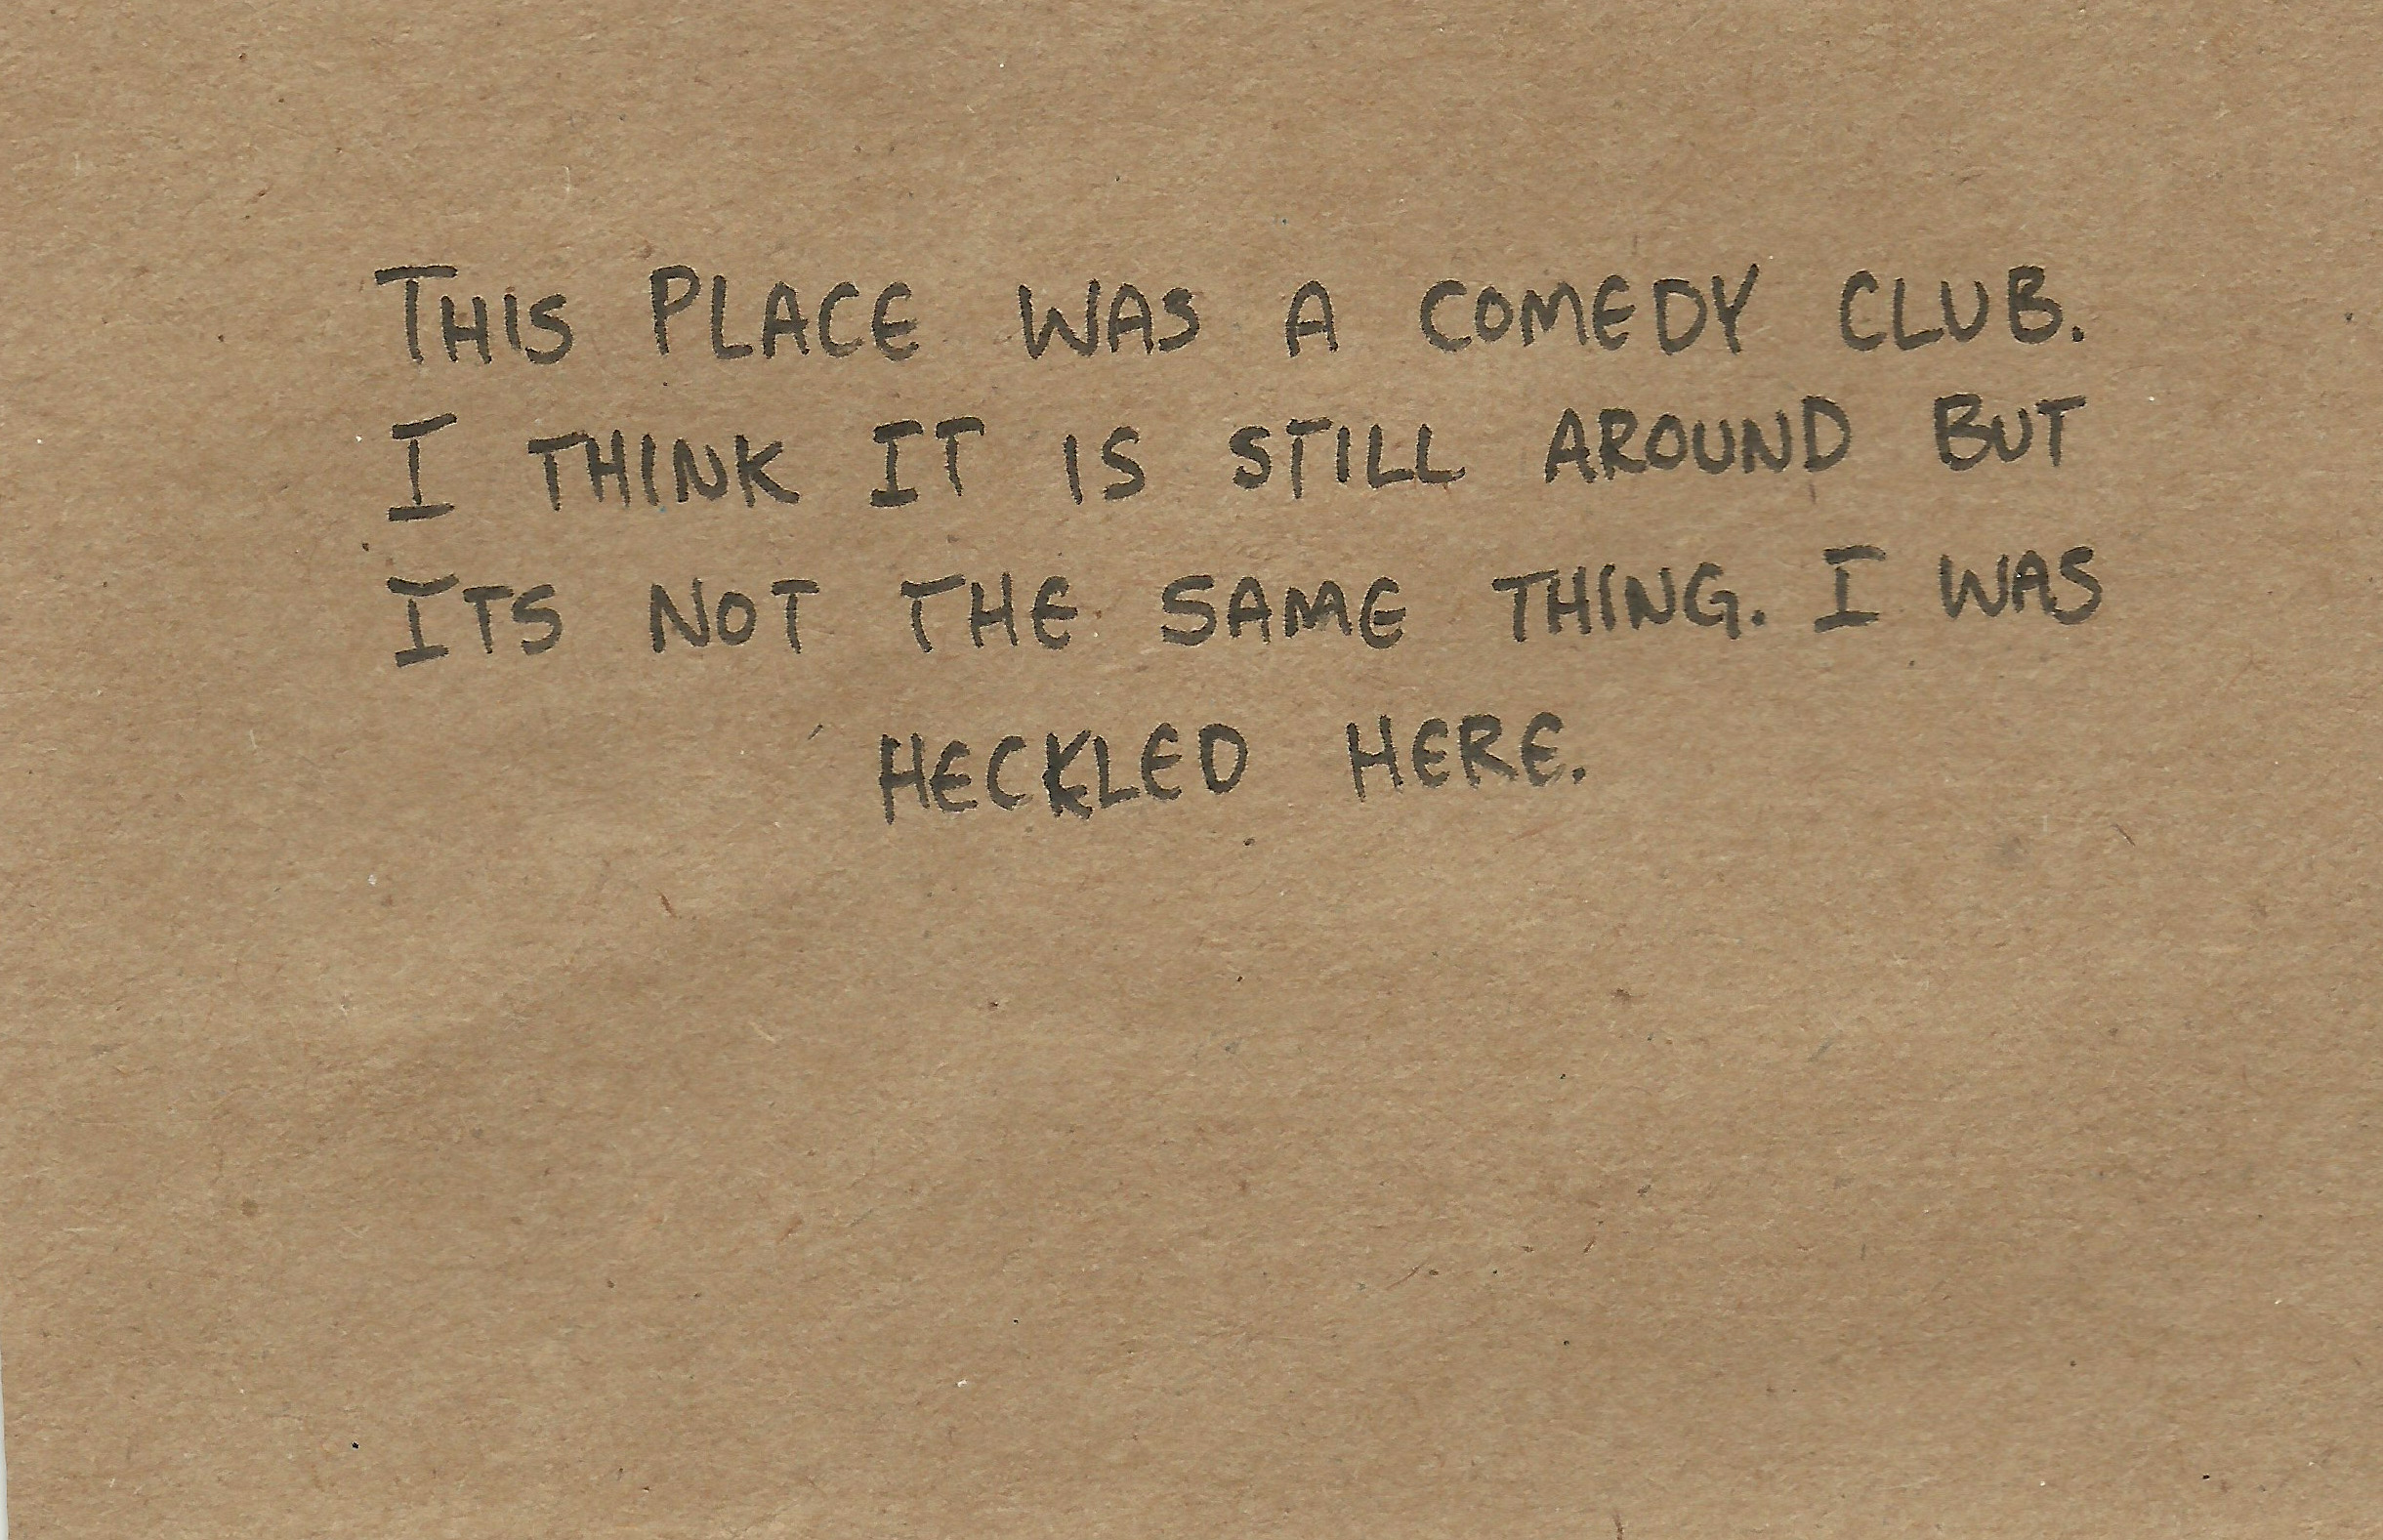 THIS PLACE WAS A COMEDY CLUB.
I THINK IT IS STILL AROUND BUT
ITS NOT THE SAME THING. I WAS
HECKLED HERE.